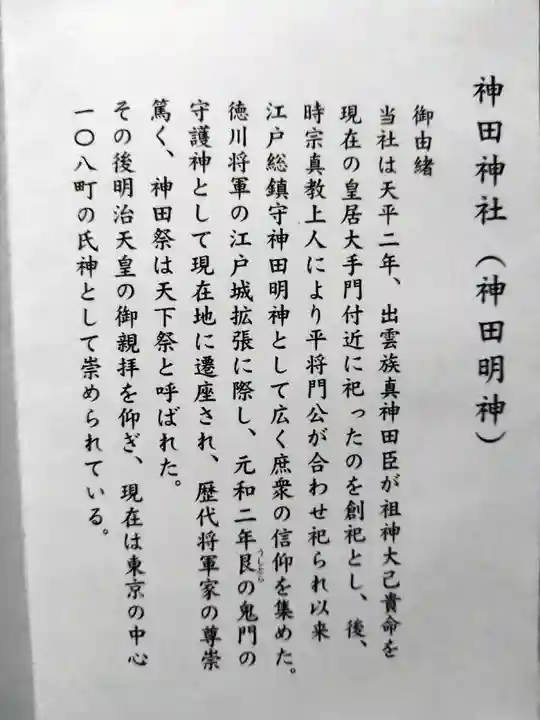 神田神社（神田明神）
御由緒
当社は天平二年、出雲族真神田臣が祖神大己貴命を
現在の皇居大手門付近に祀ったのを創祀とし、後、
時宗真教上人により平将門公が合わせ祀られ以来
江戸総鎮守神田明神として広く庶衆の信仰を集めた。
徳川将軍の江戸城拡張に際し、元和二年艮の鬼門の
うしとら
守護神として現在地に遷座され、歴代将軍家の尊崇
篤く、神田祭は天下祭と呼ばれた。
その後明治天皇の御親拝を仰ぎ、現在は東京の中心
一〇八町の氏神として崇められている。